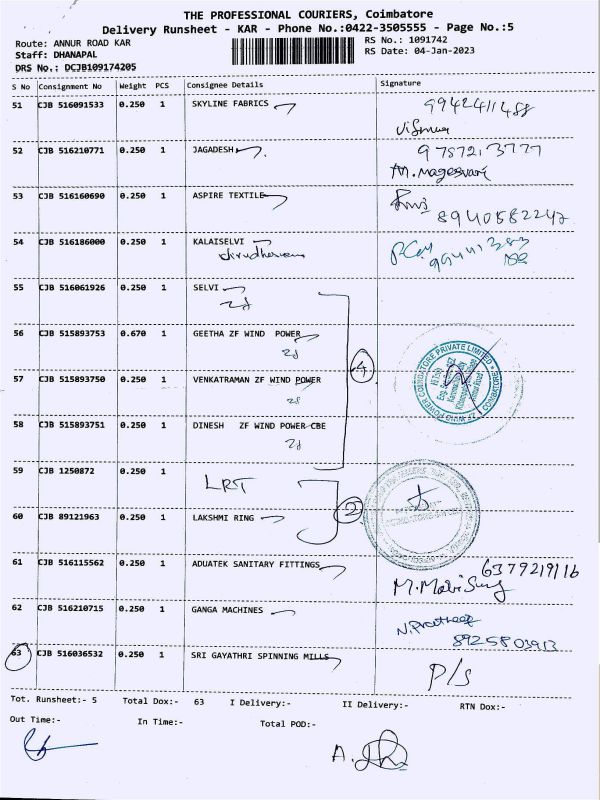 THE PROFESSIONAL COURIERS, Coimbatore
Delivery Runsheet - KAR - Phone No.:0422-3505555 - Page No.:5
Route: ANNUR ROAD KAR
RS No.: 1091742
Staff: DHANAPAL
RS Date: 04-Jan-2023
DRS No.: DCJB109174205
S No Consignment No Weight PCS Consignee Details Signature
51 CJB 516091533 0.250 1 SKYLINE FABRICS
9942411488
52 CJB 516210771 0.250 1 JAGADESH
9787213777
M. Mageswari
53 CJB 516160690 0.250 1 ASPIRE TEXTILE
8940582247
54 CJB 516186000 0.250 1 KALAISELVI
55 CJB 516061926 0.250 1 SELVI
56 CJB 515893753 0.670 1 GEETHA ZF WIND POWER
4
57 CJB 515893750 0.250 1 VENKATRAMAN ZF WIND POWER
58 CJB 515893751 0.250 1 DINESH ZF WIND POWER CBE
ZF WIND POWER COIMBATORE PRIVATE LIMITED
59 CJB 1250872 0.250 1 LRT
2
60 CJB 89121963 0.250 1 LAKSHMI RING
61 CJB 516115562 0.250 1 ADUATEK SANITARY FITTINGS
6379219116
62 CJB 516210715 0.250 1 GANGA MACHINES
63 CJB 516036532 0.250 1 SRI GAYATHRI SPINNING MILLS
P/S
Tot. Runsheet:- 5 Total Dox:- 63 I Delivery:- II Delivery:- RTN Dox:-
Out Time:- In Time:- Total POD:-